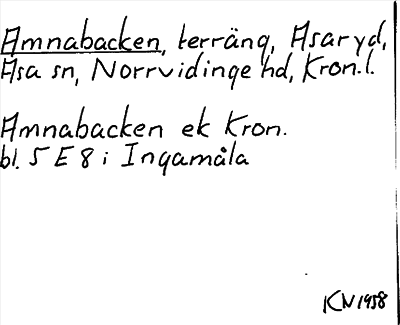 Amnabacken, terräng, Asaryd,
Asa sn, Norrvidinge hd, Kron.l.
Amnabacken ek Kron.
bl. 5 E 8 i Ingamåla
KN 1958